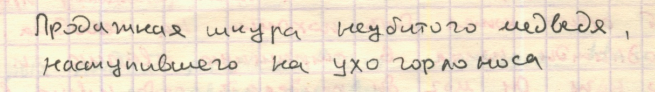 Продажная шкура неубитого медведя,
наступившего на ухо горло носа